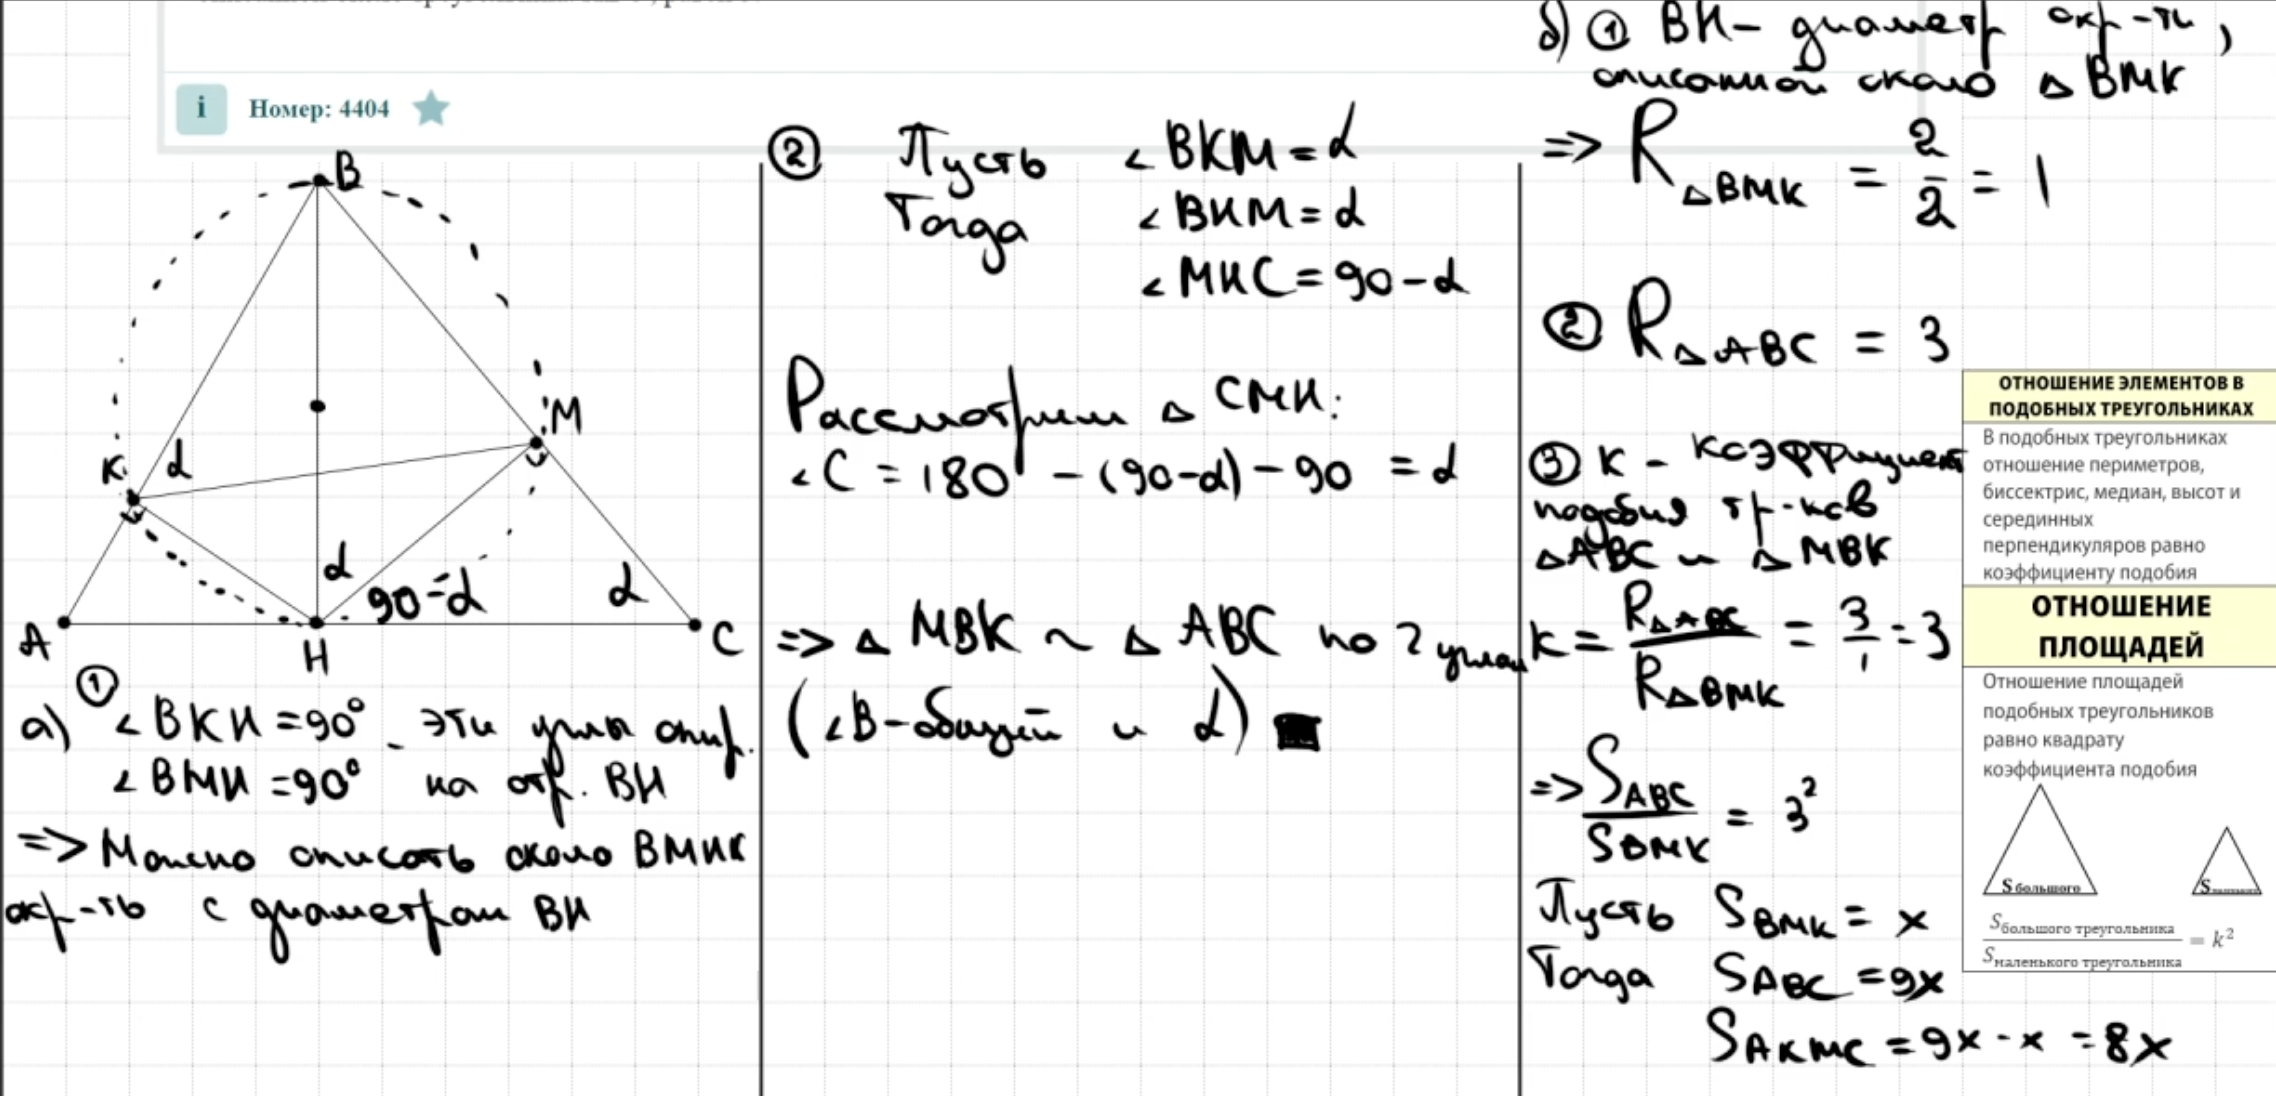 i Номер: 4404
B
K
α
M
α
90-α
α
A
H
C
а) ① ∠BKH = 90° - эти углы опир.
∠BMH = 90° на отр. BH
=> Можно описать около BMHK
окр-ть с диаметром BH
② Пусть ∠BKM = α
Тогда ∠BHM = α
∠MHC = 90 - α
Рассмотрим △ CMH:
∠C = 180 - (90-α) - 90 = α
=> △ MBK ~ △ ABC по 2 углам
(∠B - общий и α)
б) ① BH - диаметр окр-ти,
описанной около △ BMK
=> R△BMK = 2/2 = 1
② R△ABC = 3
③ K - коэффициент
подобия тр-ков
△ABC и △ MBK
K = R△ABC/R△BMK = 3/1 = 3
=> SABC/SBMK = 3²
Пусть SBMK = x
Тогда SABC = 9x
SAKMC = 9x - x = 8x
ОТНОШЕНИЕ ЭЛЕМЕНТОВ В
ПОДОБНЫХ ТРЕУГОЛЬНИКАХ
В подобных треугольниках
отношение периметров,
биссектрис, медиан, высот и
серединных
перпендикуляров равно
коэффициенту подобия
ОТНОШЕНИЕ
ПЛОЩАДЕЙ
Отношение площадей
подобных треугольников
равно квадрату
коэффициента подобия
S большого
S
Sбольшого треугольника/Sмаленького треугольника = k²